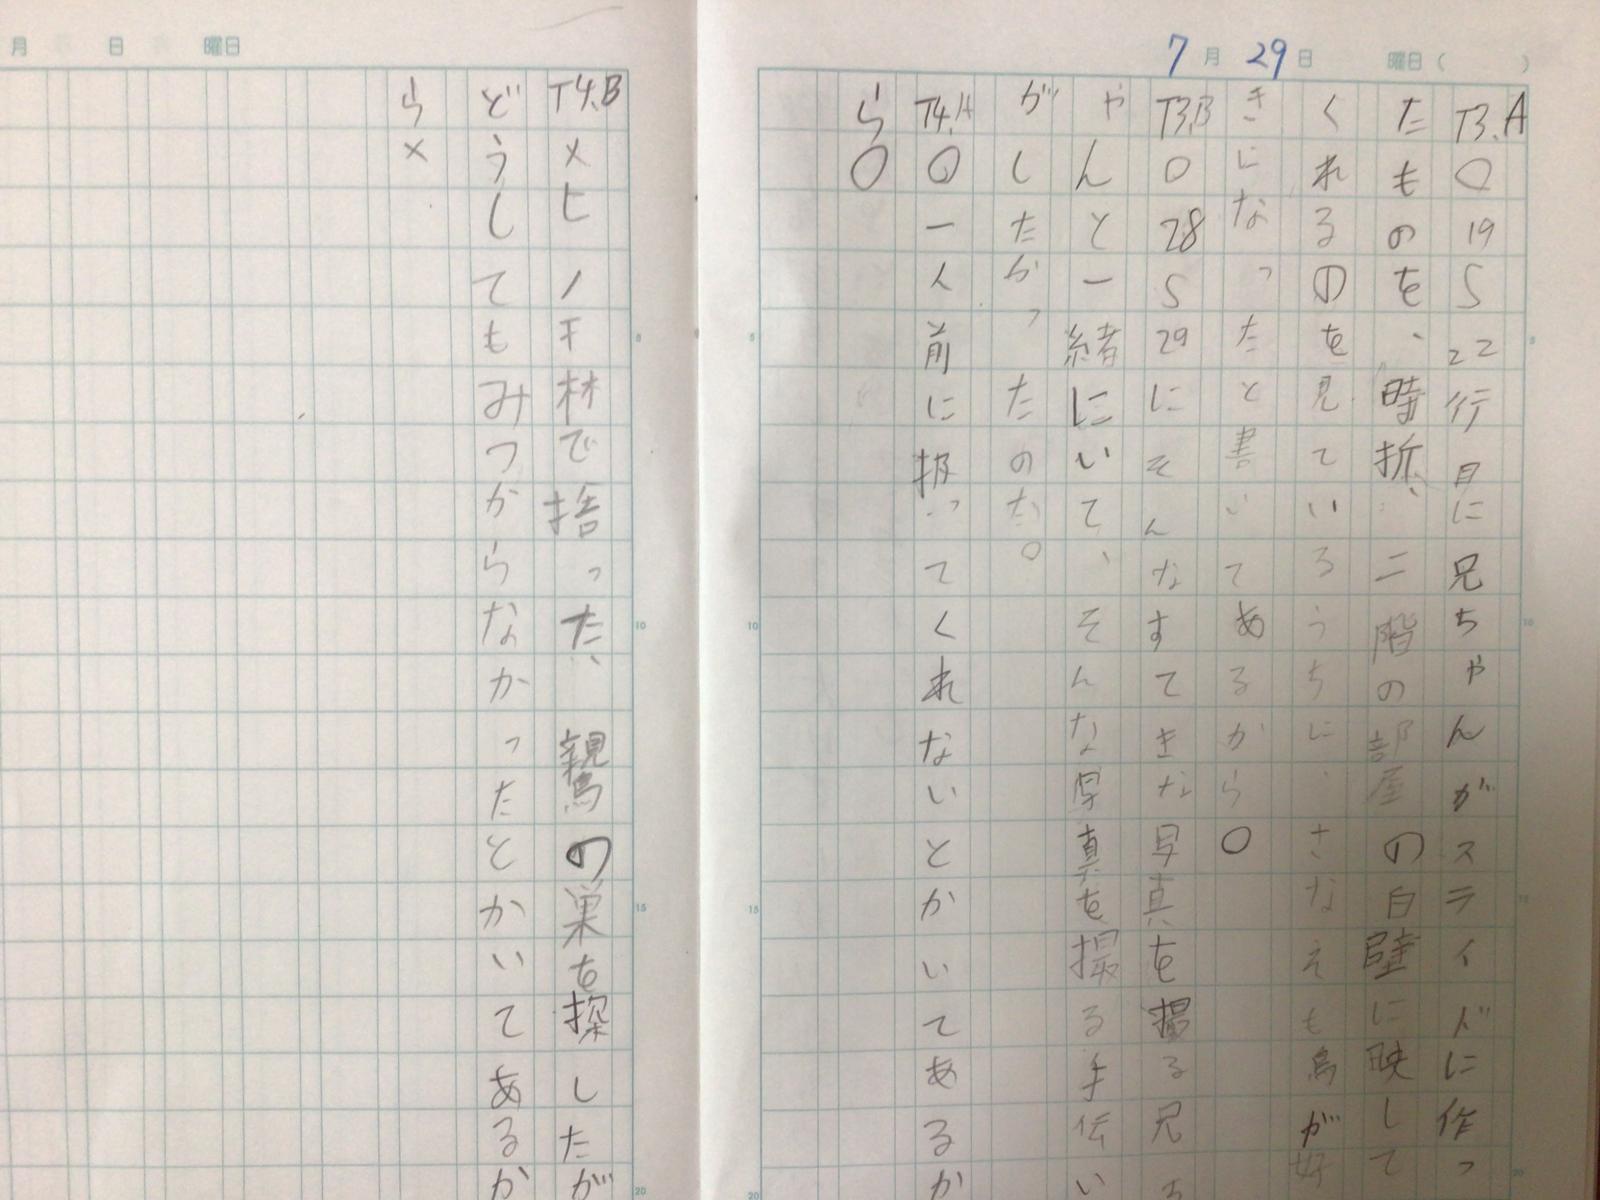 7月29日 曜日( )
T3.A〇19S22行目に兄ちゃんがスライドに作っ
たものを、時折、二階の部屋の白壁に映して
くれるのを見ているうちに、さなえも鳥が好
きになったと書いてあるから〇
T3.B〇28S29にそんなすてきな写真を撮る兄ち
ゃんと一緒にいて、そんな写真を撮る手伝い
がしたかったのだ。
T4.A〇一人前に扱ってくれないとかいてあるか
ら〇
5
10
15
20
月 日 曜日
T4.B×ヒノキ林で捨った、親鳥の巣を探したが
どうしてもみつからなかったとかいてあるか
ら×
5
10
15
20